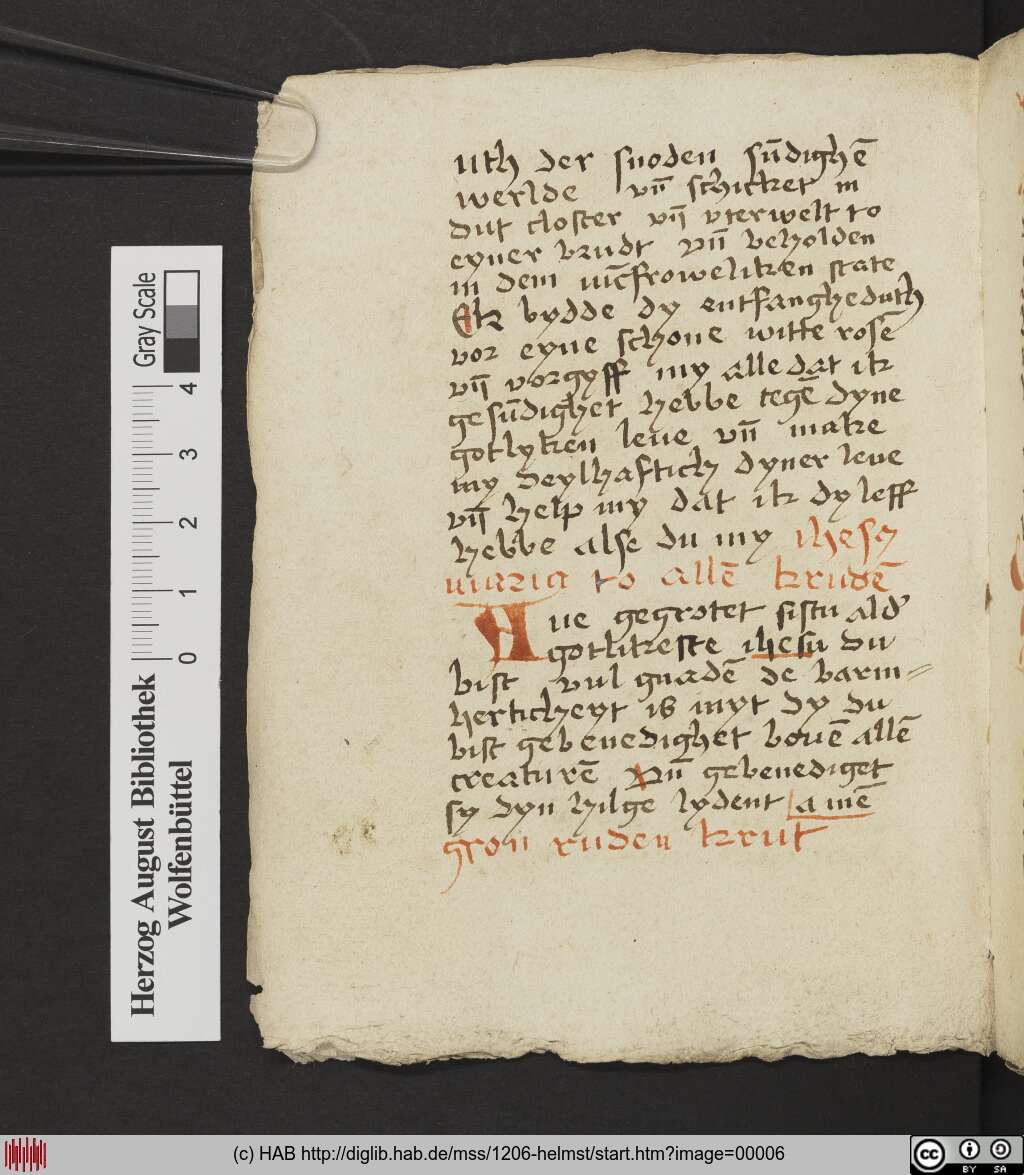 uth der snoden sūdighē
werlde vn̄ schicket in
dut closter vn̄ vterwelt to
eyner brudt vn̄ beholden
in dem iūcfroweliken state
Ek bydde dy entfanghe duth
vor eyne schone witte rosē
vn̄ vorgyff my alle dat ik
gesūdighet hebbe tegē dyne
gotlyken leue vn̄ make
my deylhaftich dyner leue
vn̄ help my dat ik dy leff
hebbe alse du my ihesꝯ
maria to allē krudē
Aue gegrotet sistu ald'
gotlikeste ihesu du
bist vul gnadē de barm=
herticheyt is myt dy du
bist gebenedighet bouē allē
creaturē Vn̄ gebenediget
sy dyn hilge lydent amē
gron ruden krut
Gray Scale
0 1 2 3 4
Herzog August Bibliothek
Wolfenbüttel
(c) HAB http://diglib.hab.de/mss/1206-helmst/start.htm?image=00006
cc BY SA